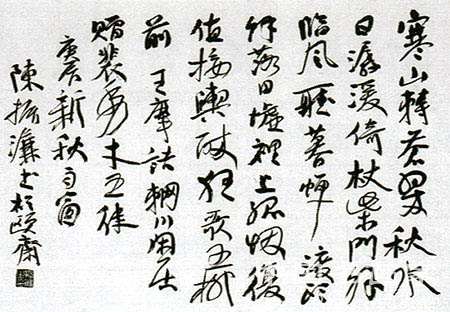 寒山轉蒼翠秋水
日潺湲倚杖柴門外
臨風聽暮蟬渡頭
餘落日墟裡上孤烟復
值接輿醉狂歌五柳
前 王摩詰輞川閑居
贈裴秀才五律
庚辰新秋雨窗
陳振濂書於頤齋